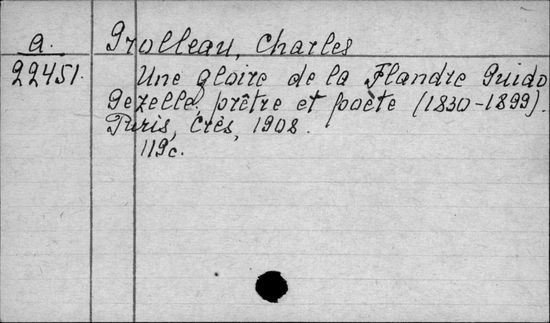 a. Grolleau, Charles
22451. Une gloire de la Flandre Guido
Gezelle, prêtre et poète (1830-1899).
Paris, Crès, 1908.
119c.